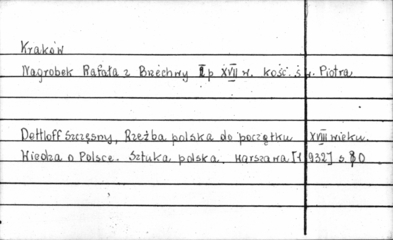 Kraków
Nagrobek Rafała z Brzechwy I p XVII w. kość. św. Piotra
Dettloff Szczęsny, Rzeźba polska do początku XVIII wieku.
Wiedza o Polsce. Sztuka polska, Warszawa [1932] s.